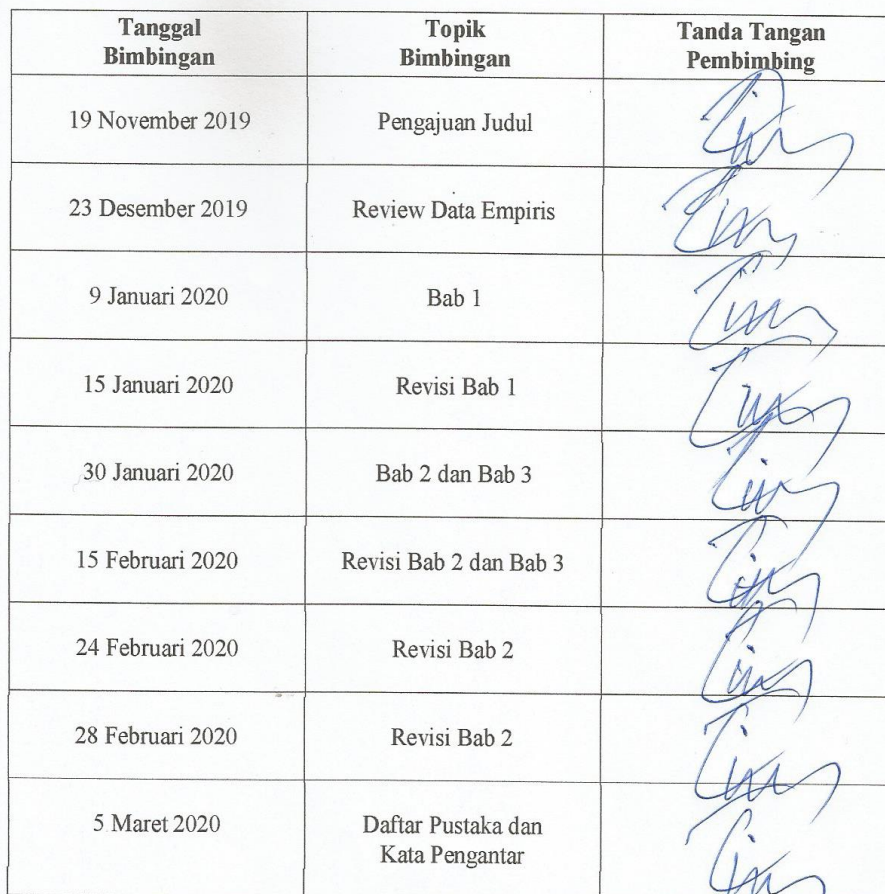 Tanggal Bimbingan Topik Bimbingan Tanda Tangan Pembimbing
19 November 2019 Pengajuan Judul
23 Desember 2019 Review Data Empiris
9 Januari 2020 Bab 1
15 Januari 2020 Revisi Bab 1
30 Januari 2020 Bab 2 dan Bab 3
15 Februari 2020 Revisi Bab 2 dan Bab 3
24 Februari 2020 Revisi Bab 2
28 Februari 2020 Revisi Bab 2
5 Maret 2020 Daftar Pustaka dan
Kata Pengantar